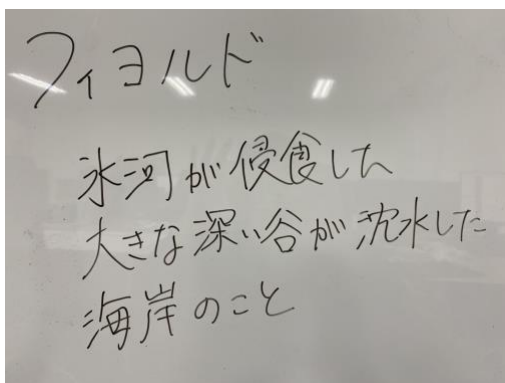 フィヨルド
氷河が侵食した
大きな深い谷が沈水した
海岸のこと